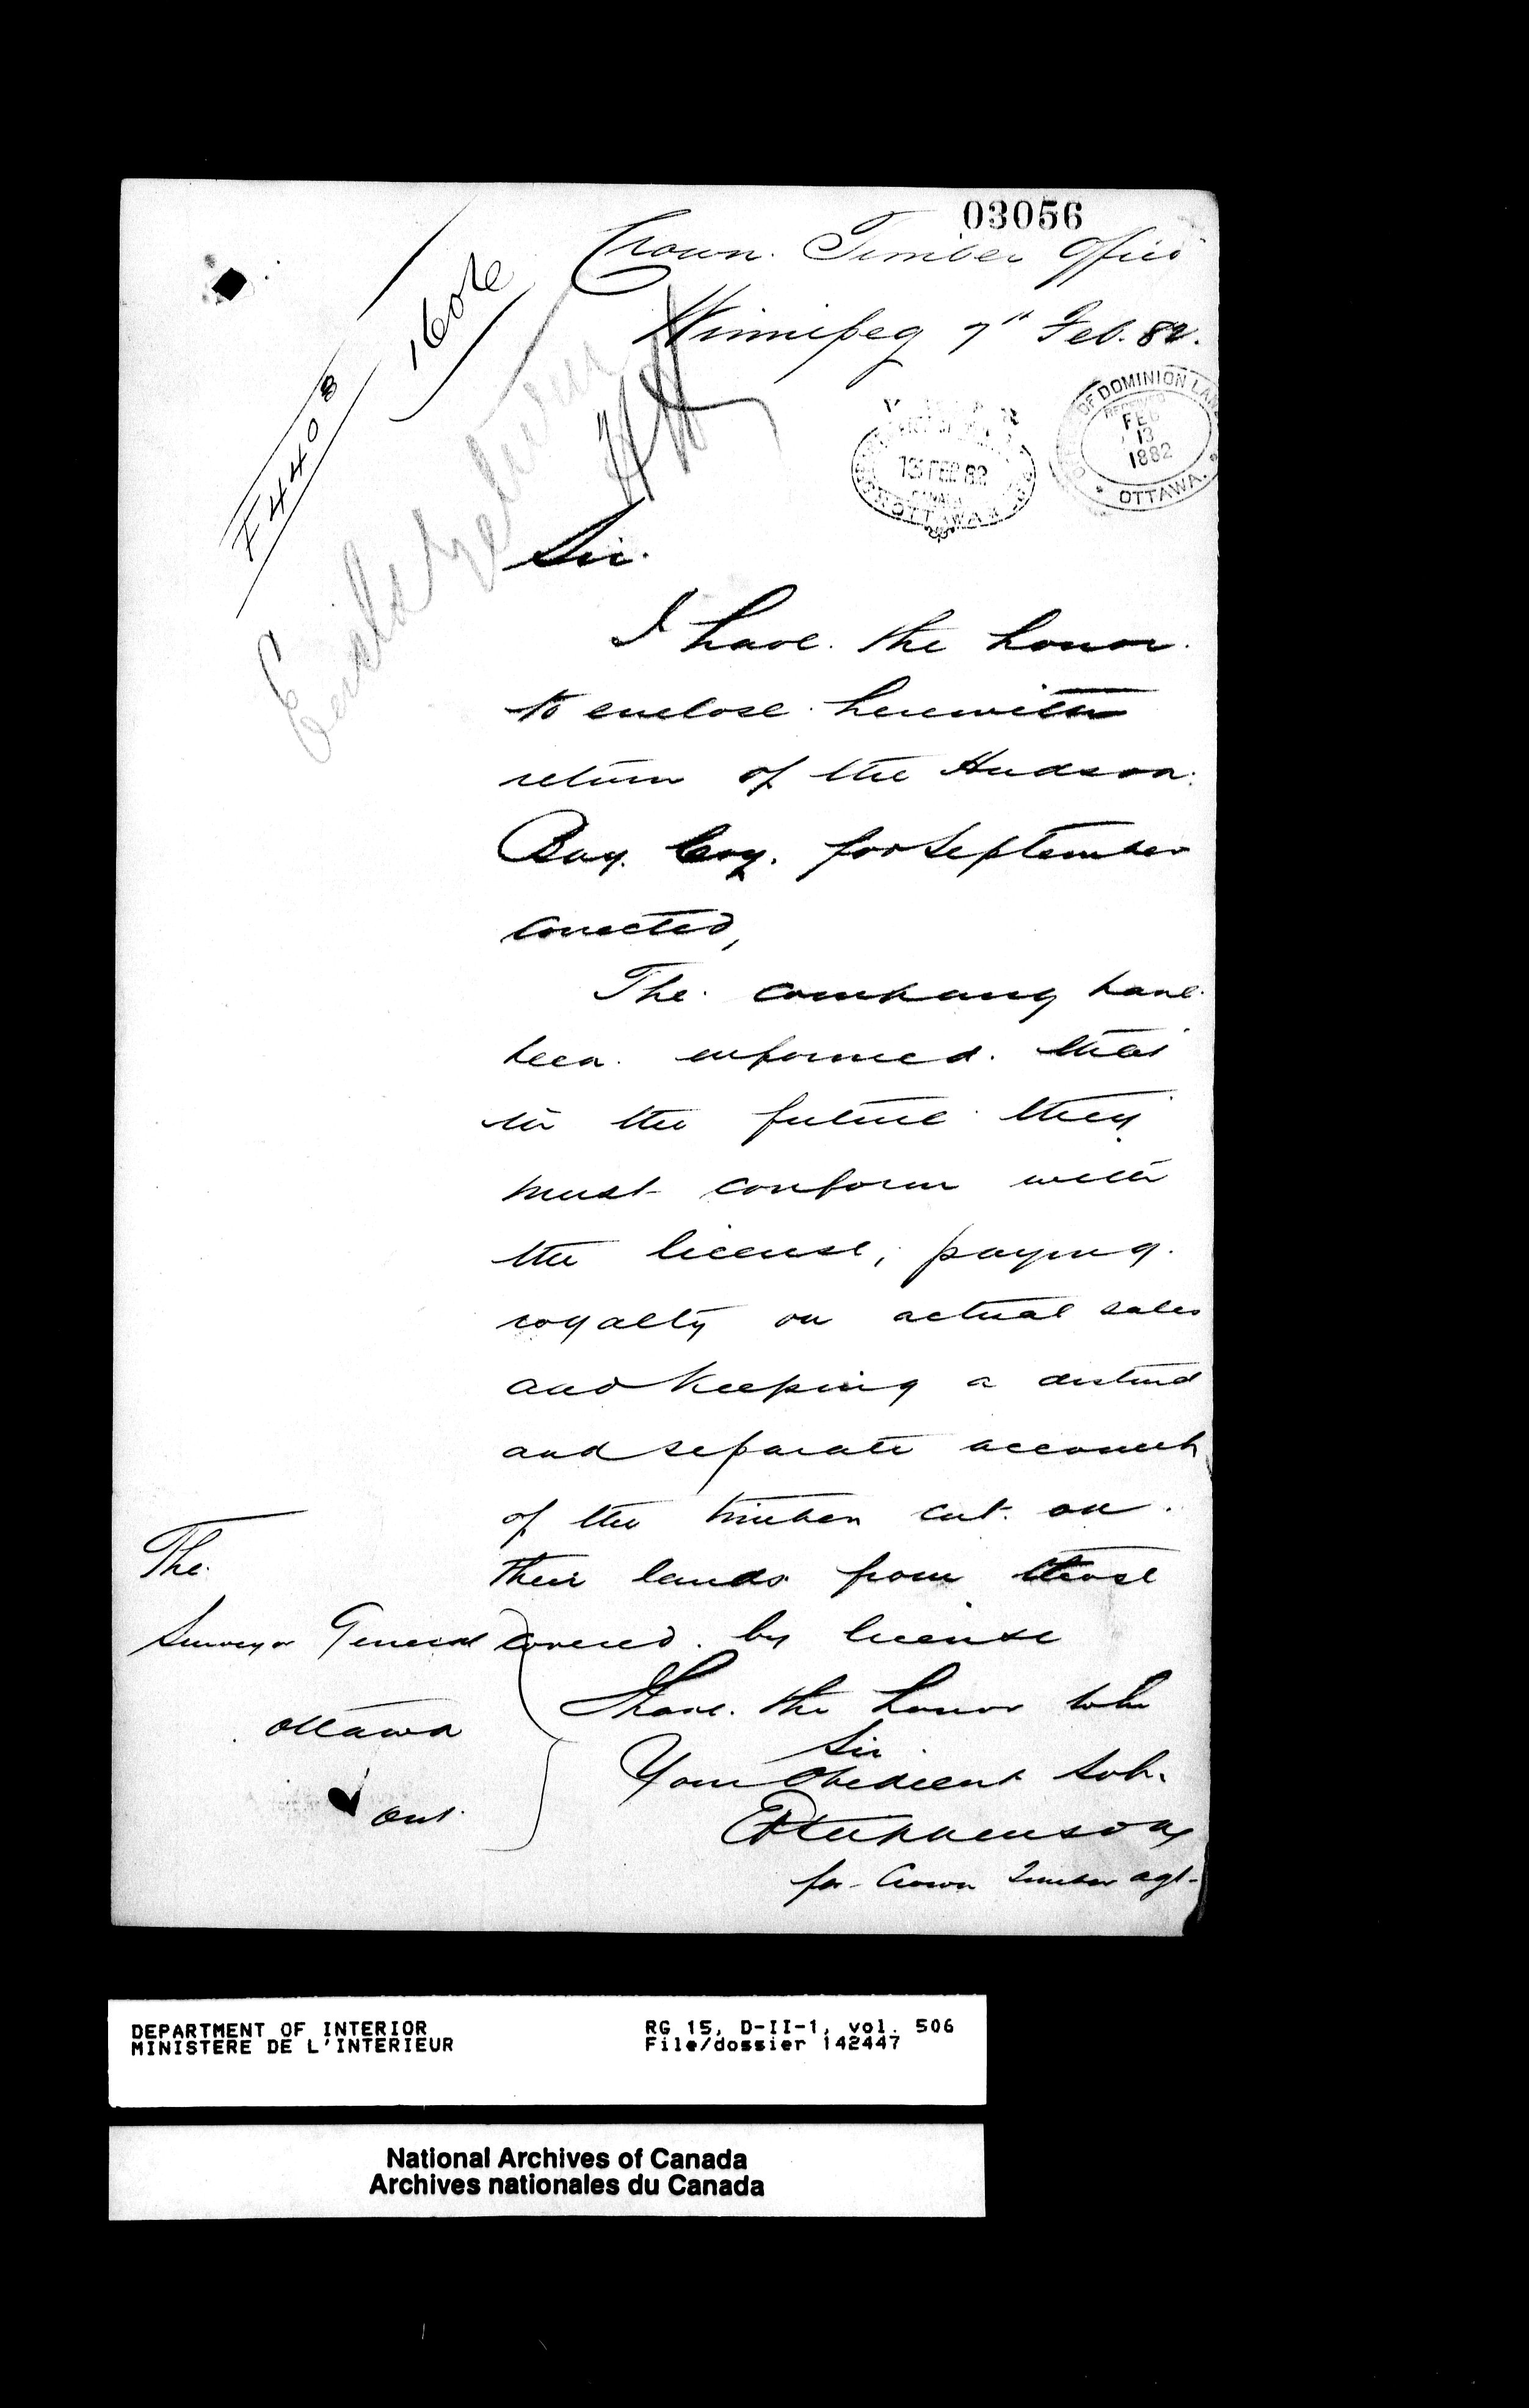 03056
Crown Timber Office
Winnipeg 7th Feb. 82.
F 4408
1606
OFFICE OF DOMINION LANDS
RECEIVED
FEB
13
1882
OTTAWA.
13 FEB 82
CANADA
OTTAWA
Sir.
I have the honor
to enclose herewith
return of the Hudson
Bay Coy. for September
corrected,
The company have
been informed that
in the future they
must conform with
the license, paying
royalty on actual sales
and keeping a distinct
and separate account
of the timber cut on
their lands from those
covered by license
I have the honor to be
Sir
Your Obedient Svt.
E F Stephenson
for Crown Timber agt-
The
Surveyor General
Ottawa
Ont
DEPARTMENT OF INTERIOR
MINISTERE DE L'INTERIEUR
RG 15, D-II-1, vol. 506
File/dossier 142447
National Archives of Canada
Archives nationales du Canada